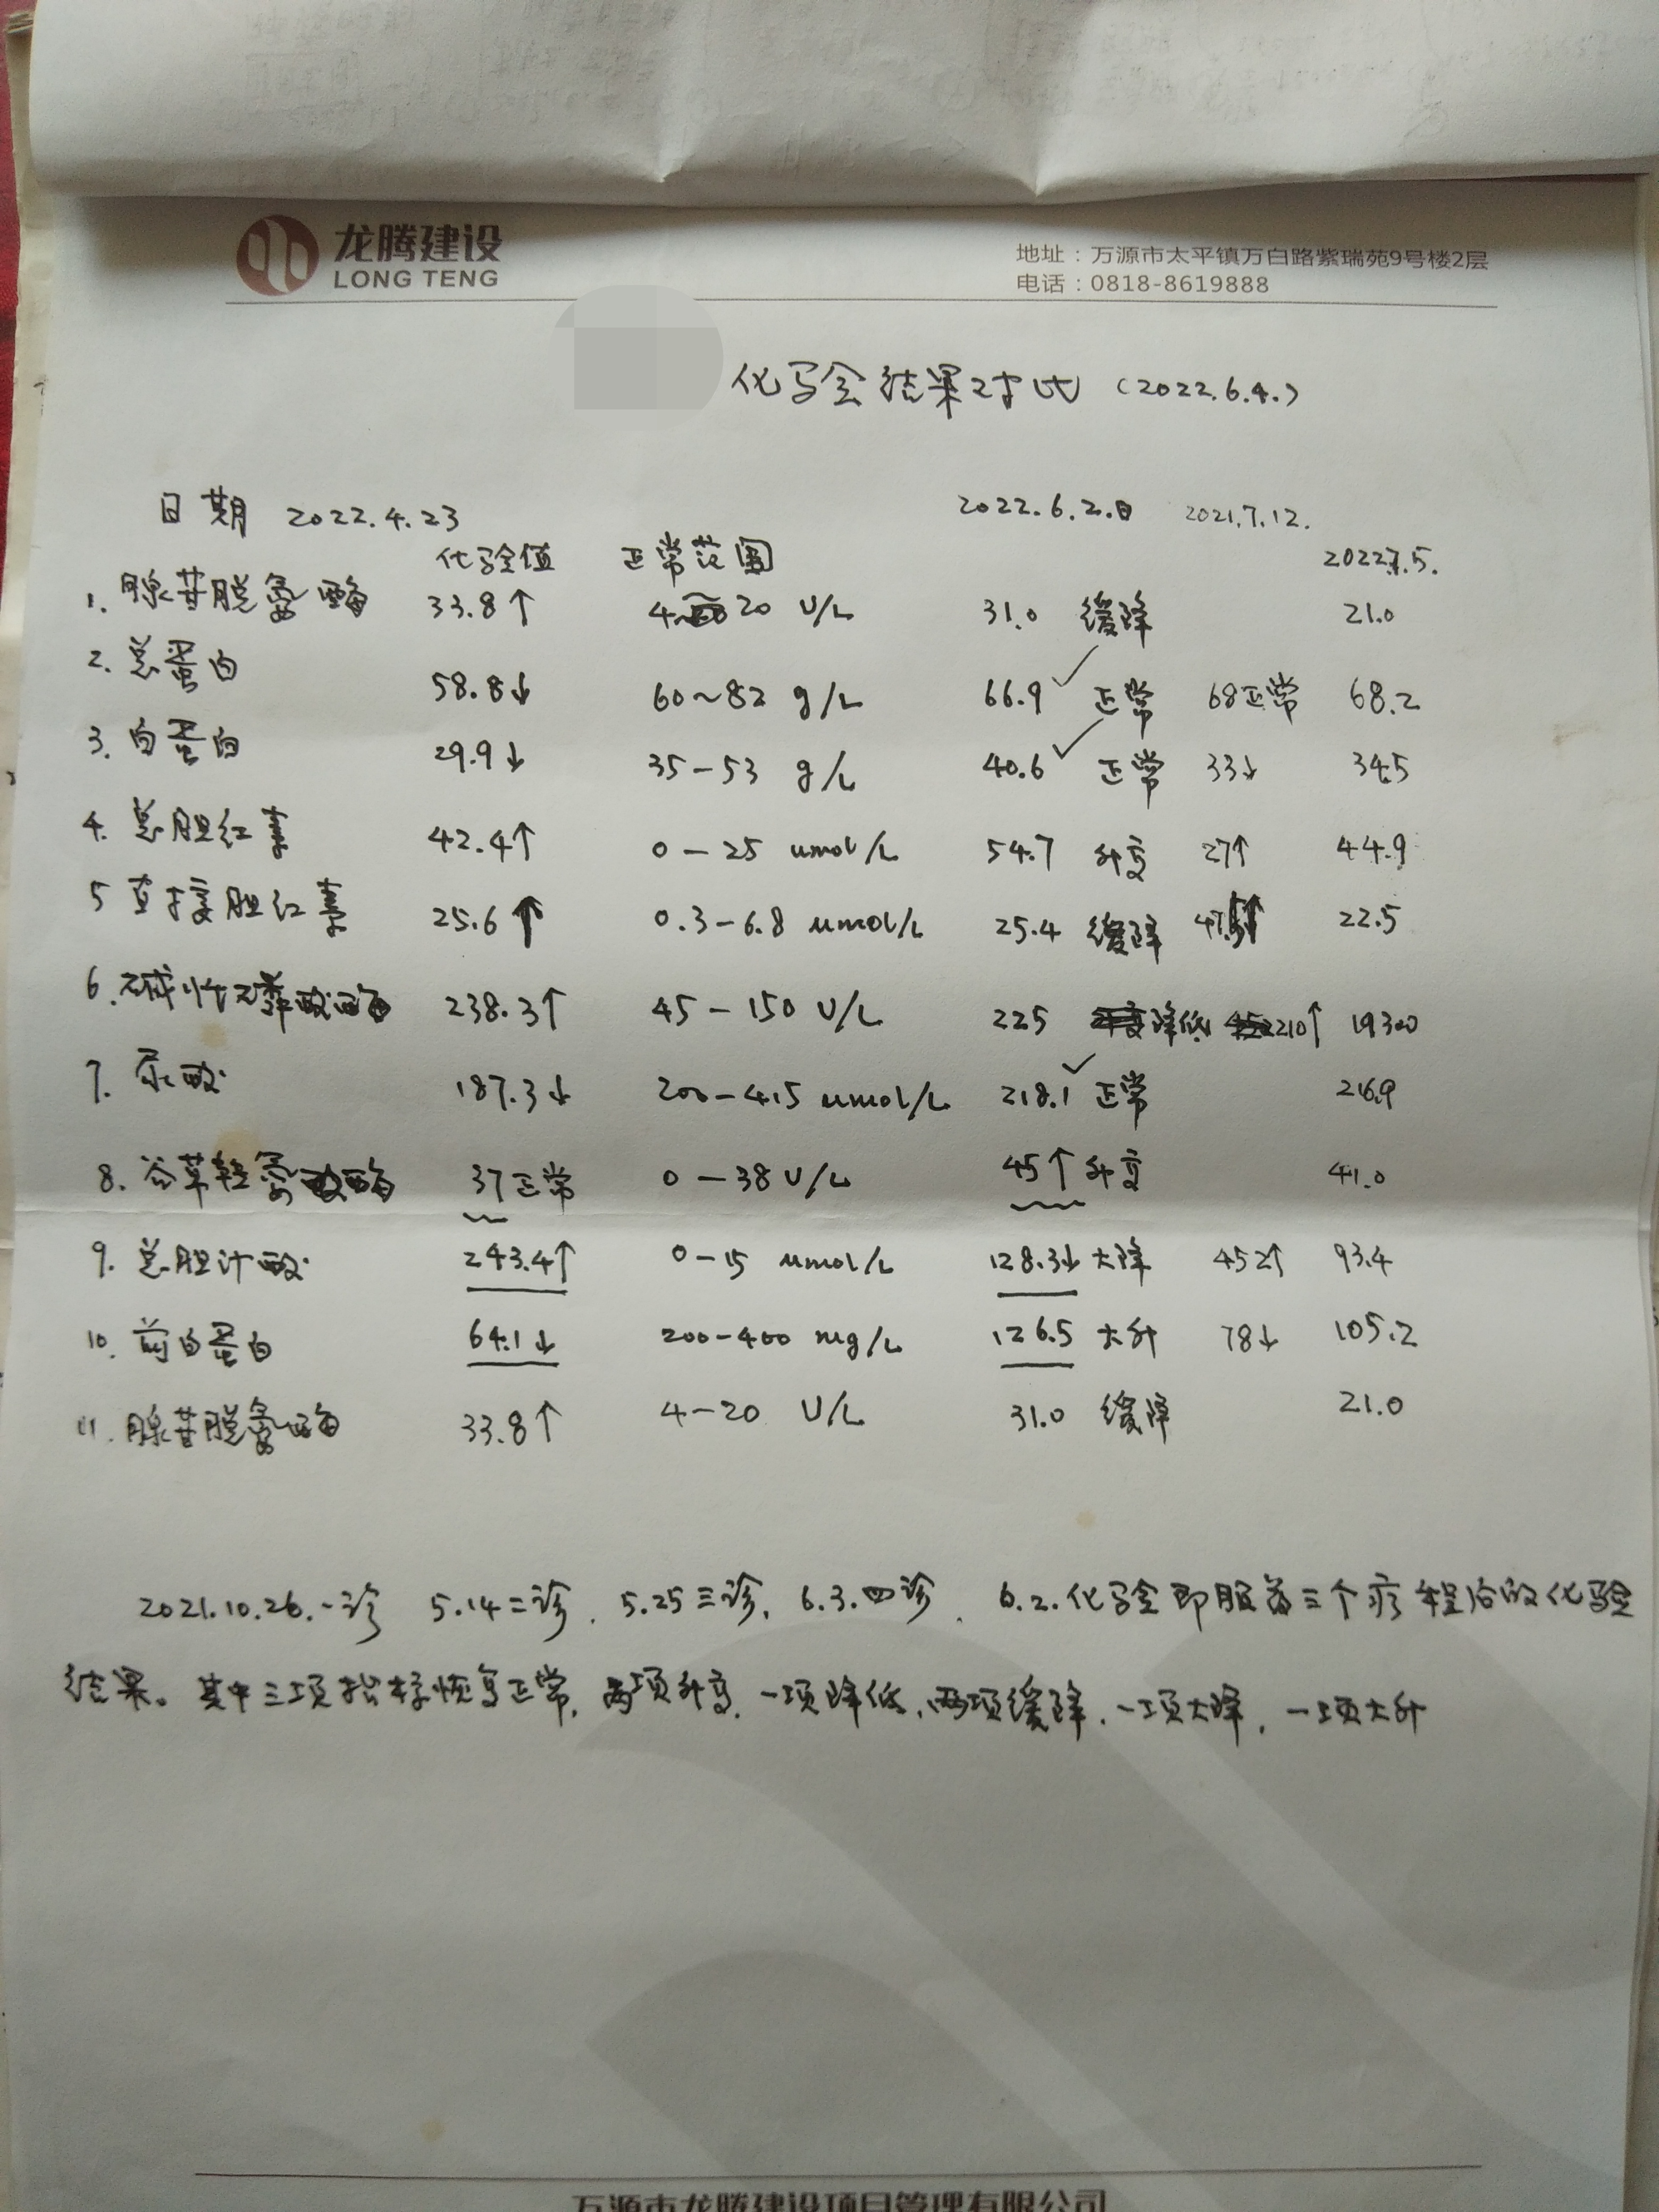 龙腾建设
LONG TENG
地址：万源市太平镇万白路紫瑞苑9号楼2层
电话：0818-8619888
化验结果对比（2022.6.4.）
日期 2022.4.23 2022.6.2.日 2021.7.12.
化验值 正常范围 2022.7.5.
1. 腺苷脱氨酶 33.8↑ 4~20 U/L 31.0 缓降 21.0
2. 总蛋白 58.8↓ 60~82 g/L 66.9 ✓ 正常 68正常 68.2
3. 白蛋白 29.9↓ 35-53 g/L 40.6 ✓ 正常 33↓ 34.5
4. 总胆红素 42.4↑ 0-25 umol/L 54.7 升高 27↑ 44.9
5 直接胆红素 25.6↑ 0.3-6.8 umol/L 25.4 缓降 22.5
6. 碱性磷酸酶 238.3↑ 45-150 U/L 225 降低 210↑
7. 尿酸 187.3↓ 200-415 umol/L 218.1 ✓ 正常 216.9
8. 谷草转氨酶 37正常 0-38 U/L 45↑升高 41.0
9. 总胆汁酸 243.4↑ 0-15 umol/L 128.3↓ 大降 452↑ 93.4
10. 前白蛋白 64.1↓ 200-400 mg/L 126.5 大升 78↓ 105.2
11. 腺苷脱氨酶 33.8↑ 4-20 U/L 31.0 缓降 21.0
2021.10.26.一诊 5.14二诊. 5.25三诊, 6.3.四诊. 6.2.化验即服药三个疗程后的化验
结果。其中三项指标恢复正常, 两项升高, 一项降低, 两项缓降, 一项大降, 一项大升
万源市龙腾建设项目管理有限公司